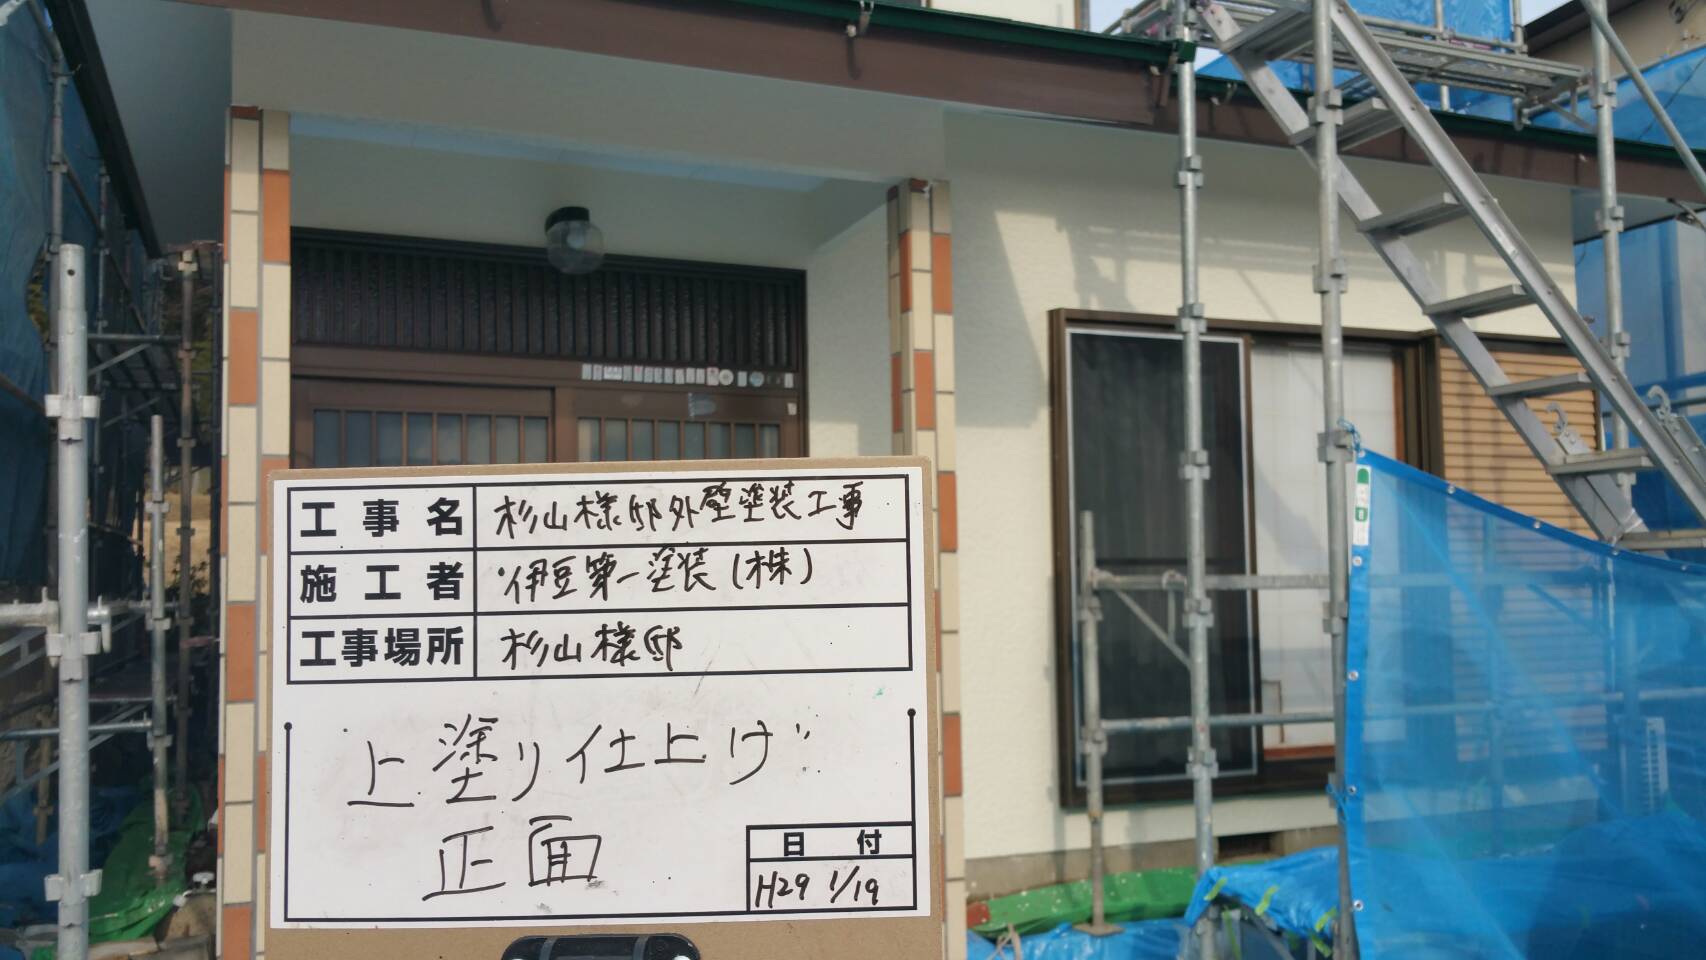 工事名 杉山様邸外壁塗装工事
施工者 伊豆第一塗装(株)
工事場所 杉山様邸
上塗り仕上げ
正面
日付
H29 1/19